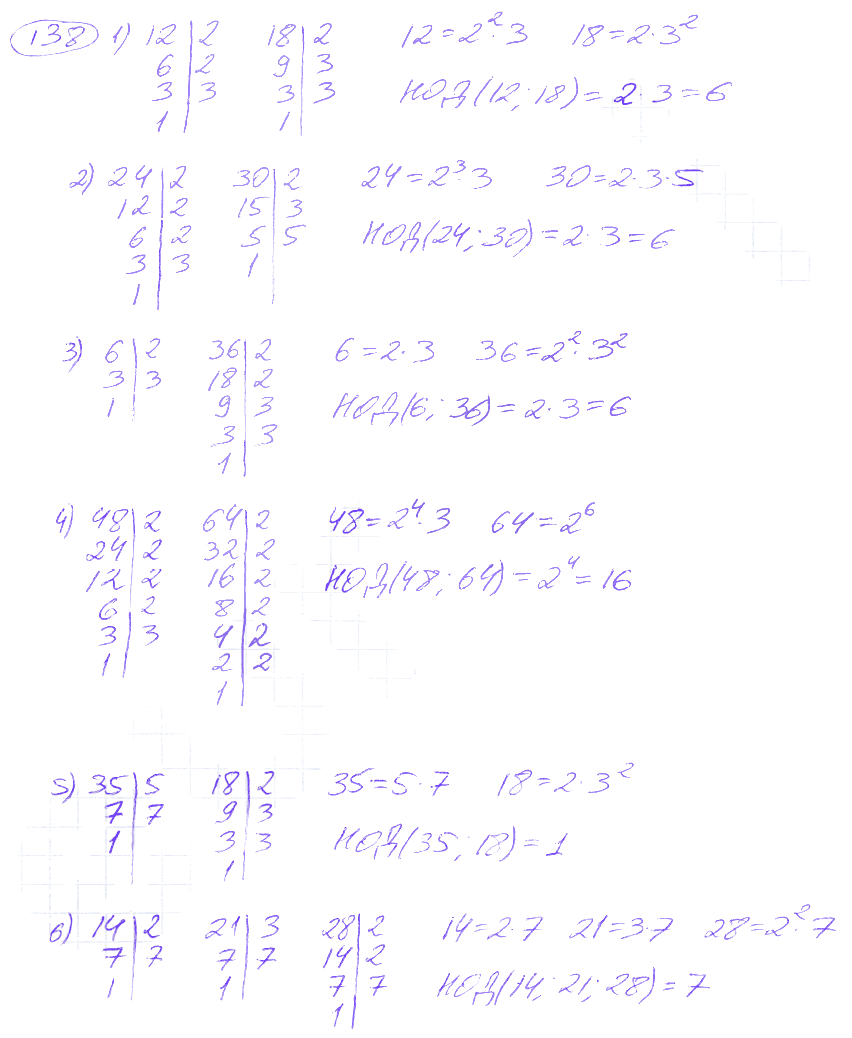 138 1) 12 | 2 18 | 2 12 = 2² · 3 18 = 2 · 3²
6 | 2 9 | 3
3 | 3 3 | 3 НОД(12; 18) = 2 · 3 = 6
1 | 1 |
2) 24 | 2 30 | 2 24 = 2³ · 3 30 = 2 · 3 · 5
12 | 2 15 | 3
6 | 2 5 | 5 НОД(24; 30) = 2 · 3 = 6
3 | 3 1 |
1 |
3) 6 | 2 36 | 2 6 = 2 · 3 36 = 2² · 3²
3 | 3 18 | 2
1 | 9 | 3 НОД(6; 36) = 2 · 3 = 6
3 | 3
1 |
4) 48 | 2 64 | 2 48 = 2⁴ · 3 64 = 2⁶
24 | 2 32 | 2
12 | 2 16 | 2 НОД(48; 64) = 2⁴ = 16
6 | 2 8 | 2
3 | 3 4 | 2
1 | 2 | 2
1 |
5) 35 | 5 18 | 2 35 = 5 · 7 18 = 2 · 3²
7 | 7 9 | 3
1 | 3 | 3 НОД(35; 18) = 1
1 |
6) 14 | 2 21 | 3 28 | 2 14 = 2 · 7 21 = 3 · 7 28 = 2² · 7
7 | 7 7 | 7 14 | 2
1 | 1 | 7 | 7 НОД(14; 21; 28) = 7
1 |